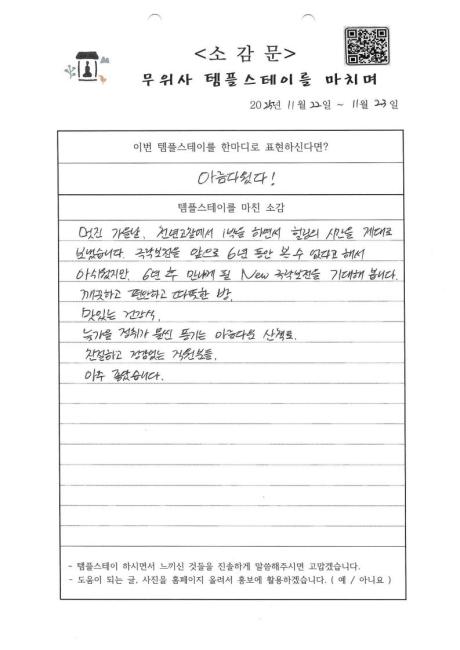 <소 감 문>
무위사 템플스테이를 마치며
2025년 11월 22일 ~ 11월 23일
이번 템플스테이를 한마디로 표현하신다면?
아름다웠다!
템플스테이를 마친 소감
멋진 가을날, 천년고찰에서 1박을 하면서 힐링의 시간을 제대로
보냈습니다. 극락보전을 앞으로 6년 동안 볼 수 없다고 해서
아쉬웠지만, 6년 후 만나게 될 New 극락보전을 기대해 봅니다.
깨끗하고 편안하고 따뜻한 방.
맛있는 건강식.
늦가을 정취가 물씬 풍기는 아름다운 산책로.
친절하고 경겸있는 직원분들.
아주 좋았습니다.
- 템플스테이 하시면서 느끼신 것들을 진솔하게 말씀해주시면 고맙겠습니다.
- 도움이 되는 글, 사진을 홈페이지 올려서 홍보에 활용하겠습니다. ( 예 / 아니요 )